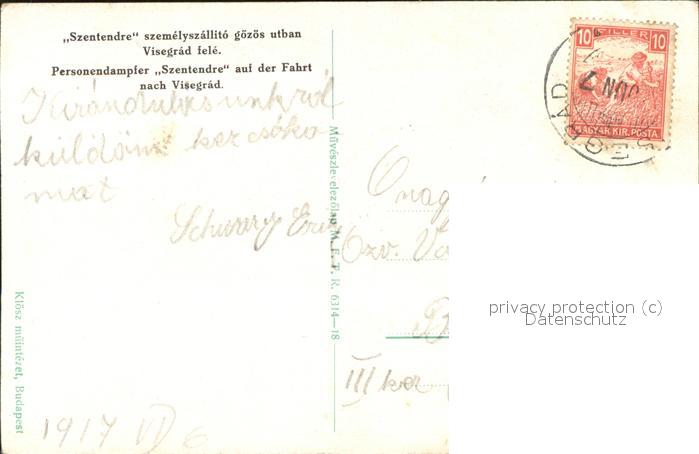 „Szentendre" személyszállító gőzös utban
Visegrád felé.
Personendampfer „Szentendre" auf der Fahrt
nach Visegrád.
Kirándulásunkról
küldöm kézcsóko
mat
Schwarz
1917 VI 6
Klösz műintézet, Budapest
Művészlevelezőlap M. F. T. R. 6314—18
10 FILLER 10
MAGYAR KIR. POSTA
Özv.
III ker
privacy protection (c)
Datenschutz